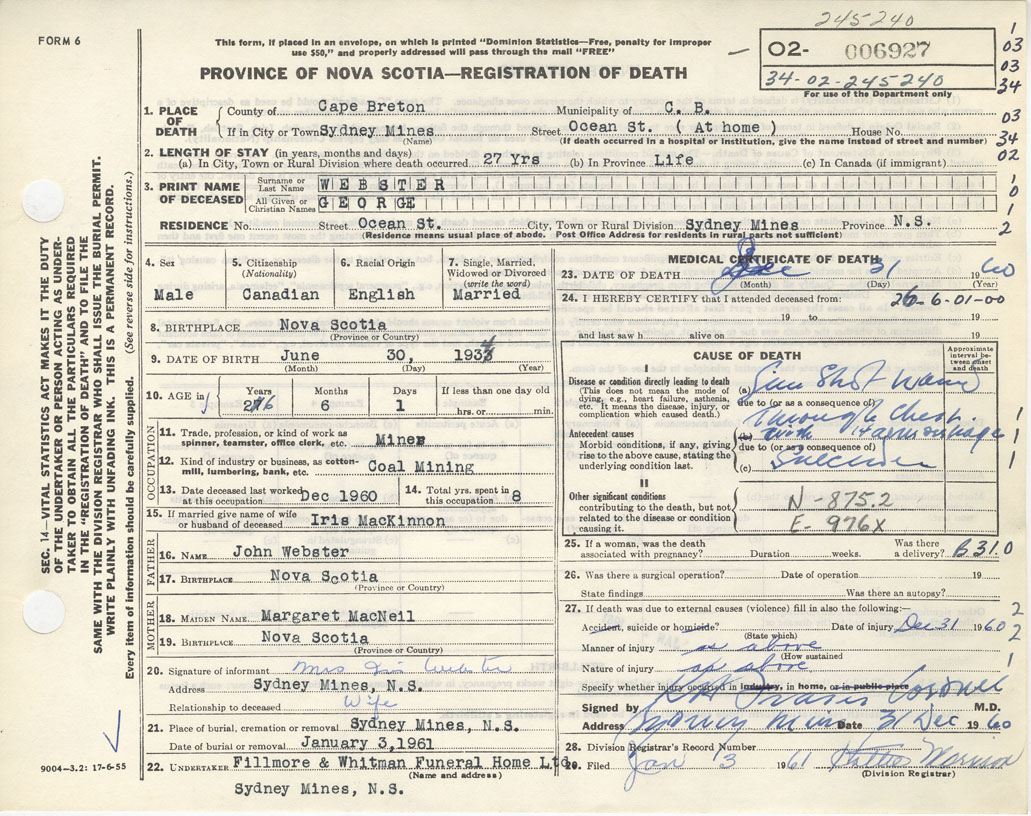 245-240
FORM 6
This form, if placed in an envelope, on which is printed "Dominion Statistics—Free, penalty for improper
use $50," and properly addressed will pass through the mail "FREE"
02- 006927
34-02-245240
For use of the Department only
PROVINCE OF NOVA SCOTIA—REGISTRATION OF DEATH
1
03
03
34
03
34
02
1
0
1
2
1. PLACE OF DEATH
County of Cape Breton Municipality of C. B.
If in City or Town Sydney Mines Street Ocean St. ( At home ) House No.
(Name) (If death occurred in a hospital or institution, give the name instead of street and number)
2. LENGTH OF STAY (in years, months and days)
(a) In City, Town or Rural Division where death occurred 27 Yrs (b) In Province Life (c) In Canada (if immigrant)
3. PRINT NAME OF DECEASED
Surname or Last Name WEBSTER
All Given or Christian Names GEORGE
RESIDENCE No. Street Ocean St. City, Town or Rural Division Sydney Mines Province N.S.
(Residence means usual place of abode. Post Office Address for residents in rural parts not sufficient)
4. Sex
Male
5. Citizenship
(Nationality)
Canadian
6. Racial Origin
English
7. Single, Married,
Widowed or Divorced
(write the word)
Married
8. BIRTHPLACE Nova Scotia
(Province or Country)
9. DATE OF BIRTH June 30, 1934
(Month) (Day) (Year)
10. AGE in
Years Months Days If less than one day old
26 6 1 hrs. or min.
OCCUPATION
11. Trade, profession, or kind of work as
spinner, teamster, office clerk, etc. Miner
12. Kind of industry or business, as cotton-
mill, lumbering, bank, etc. Coal Mining
13. Date deceased last worked
at this occupation Dec 1960
14. Total yrs. spent in
this occupation 8
15. If married give name of wife
or husband of deceased Iris MacKinnon
FATHER
16. NAME John Webster
17. BIRTHPLACE Nova Scotia
(Province or Country)
MOTHER
18. MAIDEN NAME Margaret MacNeil
19. BIRTHPLACE Nova Scotia
(Province or Country)
20. Signature of informant Mrs Iris Webster
Address Sydney Mines, N.S.
Relationship to deceased Wife
21. Place of burial, cremation or removal Sydney Mines, N.S.
Date of burial or removal January 3,1961
22. UNDERTAKER Fillmore & Whitman Funeral Home Ltd.
(Name and address)
Sydney Mines, N.S.
MEDICAL CERTIFICATE OF DEATH
23. DATE OF DEATH Dec 31 1960
(Month) (Day) (Year)
24. I HEREBY CERTIFY that I attended deceased from: 26-6-01-00
19 to 19
and last saw h alive on 19
CAUSE OF DEATH
Approximate
interval be-
tween onset
and death
I
Disease or condition directly leading to death
(This does not mean the mode of
dying, e.g., heart failure, asthenia,
etc. It means the disease, injury, or
complication which caused death.)
(a) Gun Shot Wound
due to (or as a consequence of)
Through Chest.
Antecedent causes
Morbid conditions, if any, giving
rise to the above cause, stating the
underlying condition last.
(b) with Haemorrhage
due to (or as consequence of)
(c)
II
Other significant conditions
contributing to the death, but not
related to the disease or condition
causing it.
N-875.2
E-976X
1
1
1
25. If a woman, was the death
associated with pregnancy? Duration weeks. Was there
a delivery? B31.0
26. Was there a surgical operation? Date of operation 19
State findings Was there an autopsy?
27. If death was due to external causes (violence) fill in also the following:—
Accident, suicide or homicide? Date of injury Dec 31 1960
(State which)
Manner of injury as above
(How sustained
Nature of injury as above
Specify whether injury occurred in industry, in home, or in public place
2
2
1
Signed by Fraser Coroner M.D.
Address Sydney Mines Date 31 Dec 1960
28. Division Registrar's Record Number
29. Filed Jan 3 1961
(Division Registrar)
SEC. 14—VITAL STATISTICS ACT MAKES IT THE DUTY
OF THE UNDERTAKER OR PERSON ACTING AS UNDER-
TAKER TO OBTAIN ALL THE PARTICULARS REQUIRED
IN THE "REGISTRATION OF DEATH" AND TO FILE THE
SAME WITH THE DIVISION REGISTRAR WHO SHALL ISSUE THE BURIAL PERMIT.
WRITE PLAINLY WITH UNFADING INK. THIS IS A PERMANENT RECORD.
Every item of information should be carefully supplied. (See reverse side for instructions.)
9004-3.2: 17-6-55